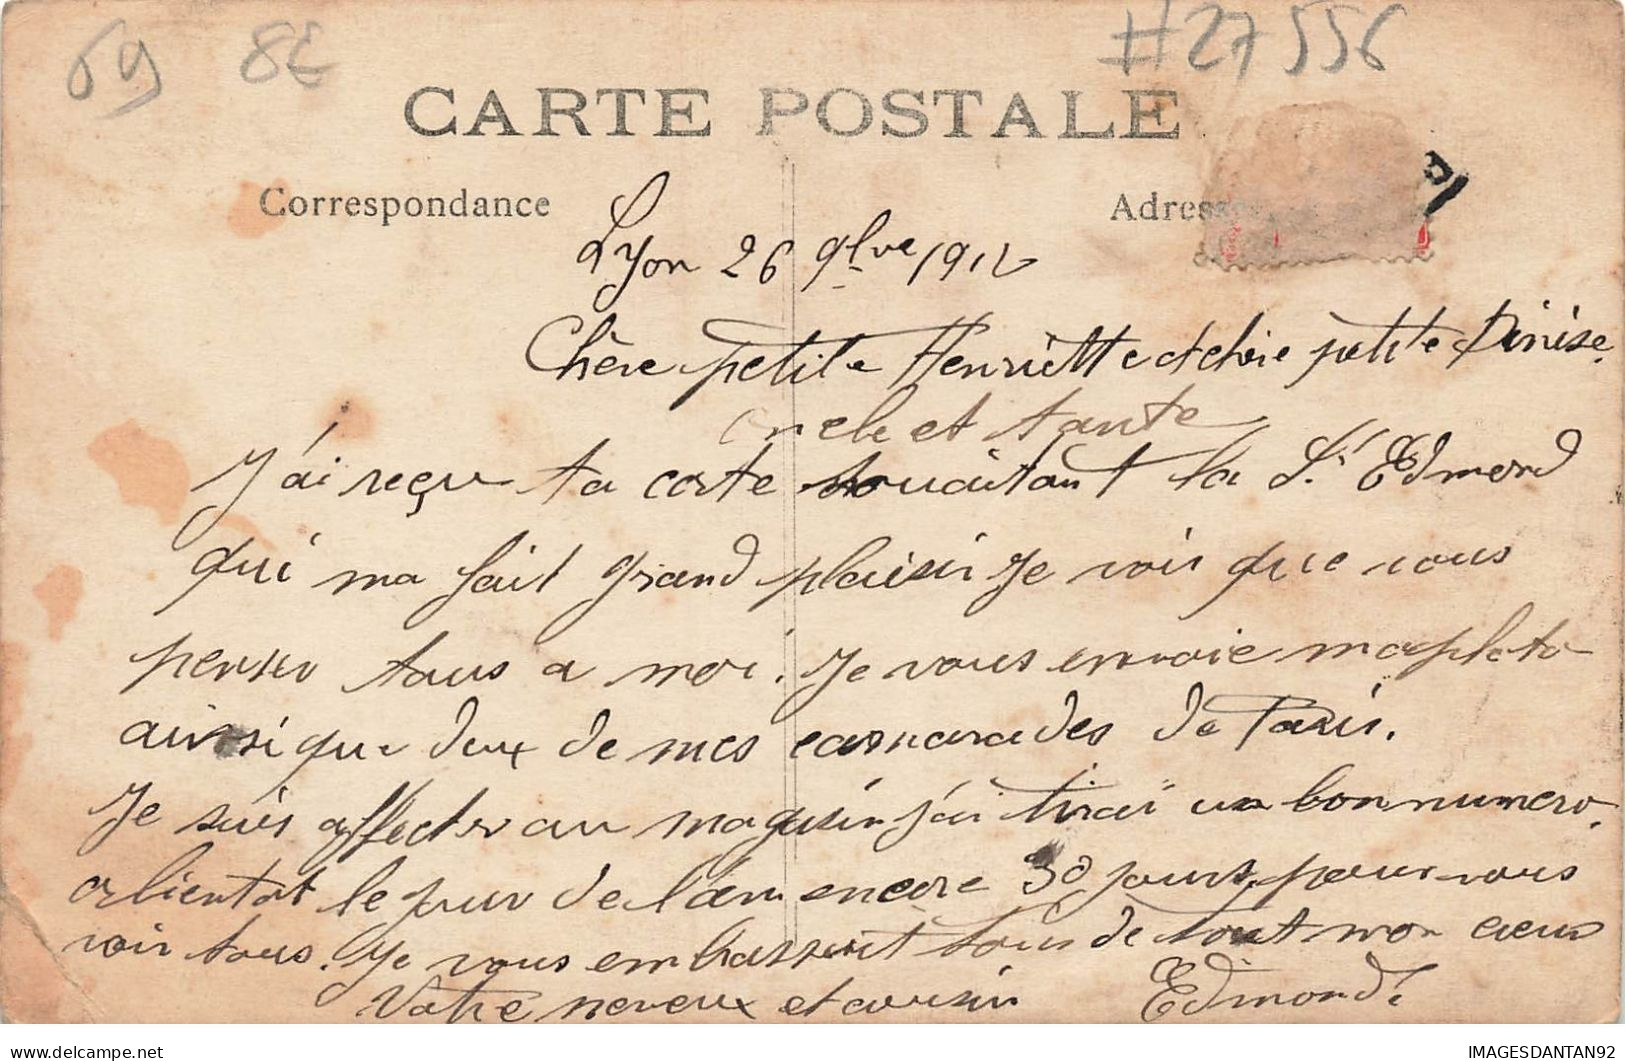 69 8E #27556
CARTE POSTALE
Correspondance
Adresse
Lyon 26 9bre 1912
Chère petite Henriette et chère petite Dinise.
oncle et tante
J'ai reçu ta carte souaitant la St Edmond
qui ma fait grand plaisir Je vois que vous
penser tous a moi. Je vous envoie ma
ainsi que deux de mes camarades de Paris.
Je suis affecter au magasin j'ai tirai un bon numero.
a bientot le jour de l'an encore 30 jours, pour vous
voir tous. Je vous embrassent tous de tout mon cœur
Votre neveux et cousin Edmond
IMAGESDANTAN92